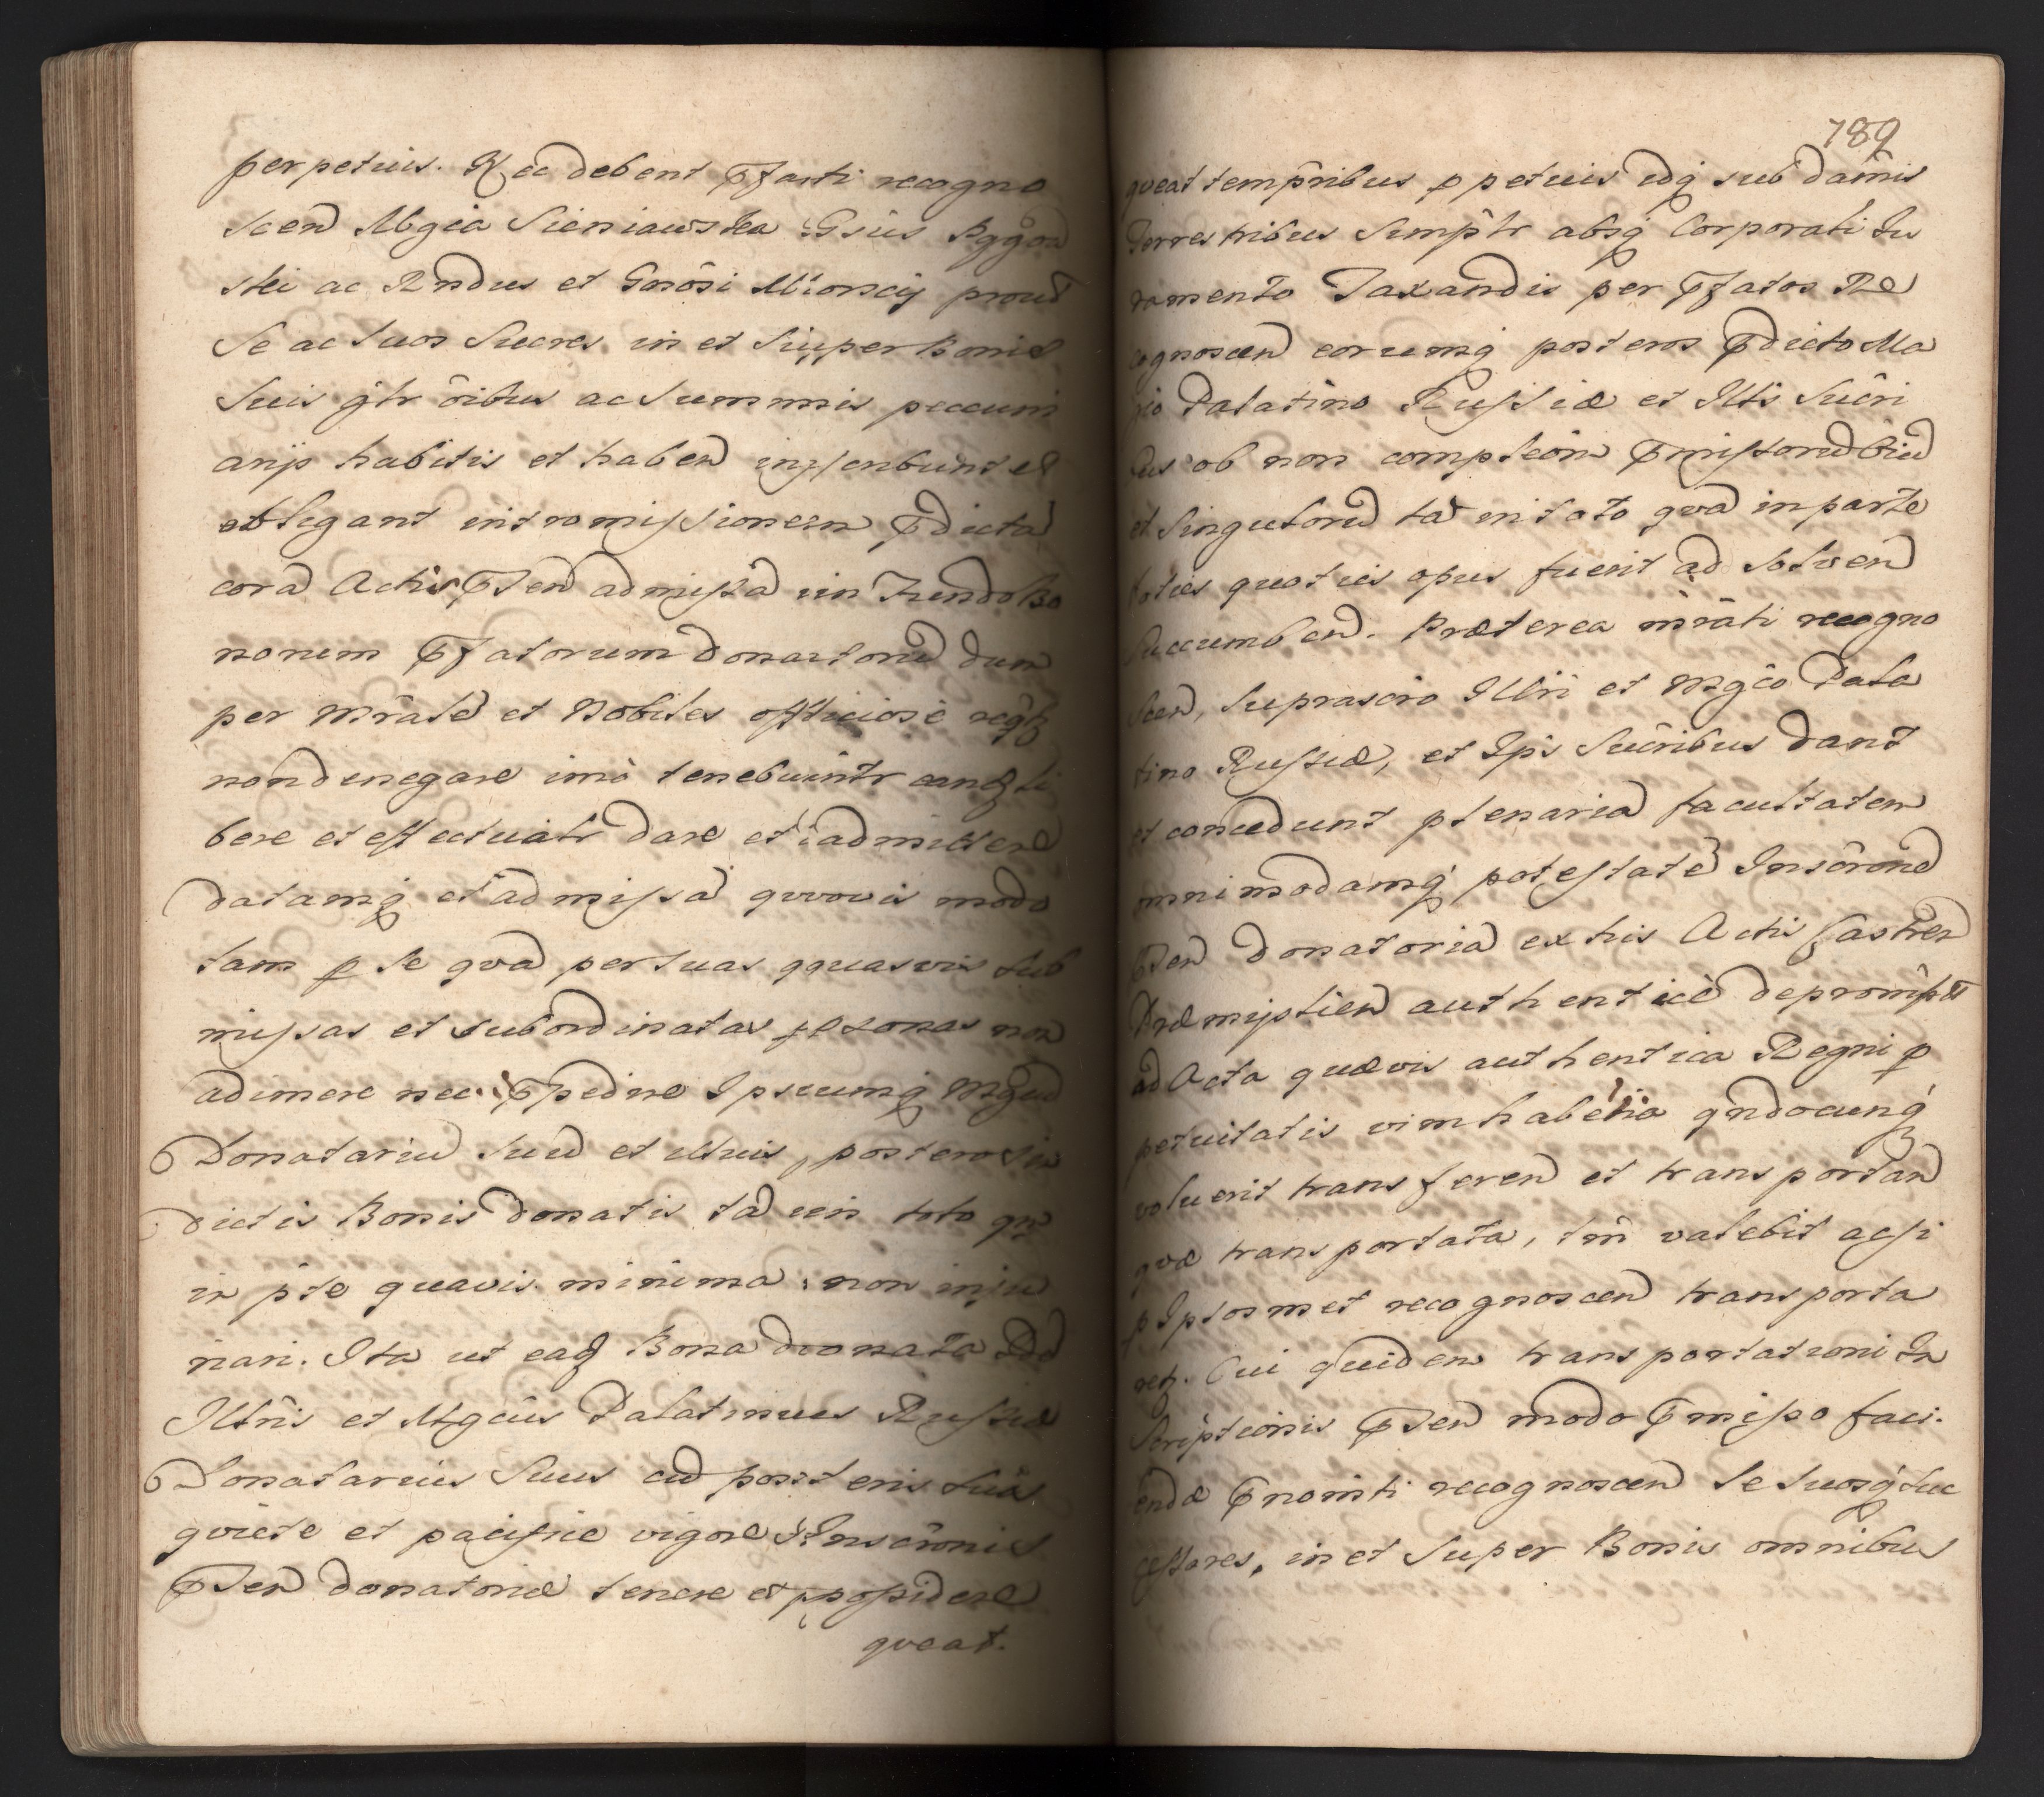 perpetuis. Nec debent Pfati recogno
scen Mgca Sieniawska Gsus
ski ac Rndus et Gnosi Mioncij proud
Se ac Suos Sucres in et Super Bonis
Suis gtr oibus ac Summis pecuni
arijs habitis et haben inscribunt et
obligant intromissionem Pdicta
cora Actis Psen admissa in Fundo Bo
norum Pfatorum donatoru dum
per Mrale et Nobiles officiose reqr
non denegare imo tenebuntr eanq li
bere et effectualr dare et admittere
datamq et admissa quovis modo
tam p Se qva per Suas qquasvis Sub
missas et subordinatas psonas non
adimere nec Ppedire Ipsumq Mgcu
Donatariu Suu et illius posteros in
dictis Bonis donatis ta in toto qu
in pte quavis minima non inju
riari. Ita ut eaq Bona donata
Illris et Mgcus Palatinus Russiæ
Donatarius Suus cu posteris Suis
qviete et pacifice vigore Inscronis
Psen donatoriæ tenere et possidere
qveat.
789
qveat tempribus ppetuis idq sub damis
Terrestribus Simpltr absq Corporali Ju
ramento Taxandis per Pfatos Re
cognoscen eorumq posteros Pdicto Ma
co Palatino Russiæ et Ills Sucri
bus ob non compleom Pmissoru Oiu
et Singuloru ta in toto qva in parte
toties quoties opus fuerit ad Solven
Succumben. Præterea mrati recogno
scen, Suprascro Illri et Mgco Pala
tino Russiæ, et Ips Sucribus dant
et concedunt plenaria facultatem
omnimodamq potestate Inscrone
Psen donatoria ex his Actis Castren
Præmyslien authentice deprompt
ad Acta quævis authentica Regni p
petuitatis vim habetia qndocunq
voluerit transferen et transportan
qvæ transportata, tm valebit acsi
p Ipsosmet recognoscen transporta
retr. Cui quidem transportationi In
scriptionis Psen modo Pmisso faci.
endæ Pnomti recognoscen Se Suosq Suc
cessores, in et Super Bonis omnibus